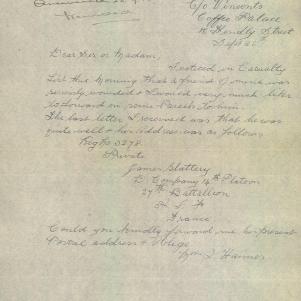 C/o Vincents
Coffee Palace
Hindly Street
Dear Sir or Madam,
I noticed in Casualty
List this Morning that a friend of mine was
severly wounded & I would very much like
to forward on some Parcels to him.
The last letter I received was that he was
quite well & his address was as follows
Reg No 5278.
Private
James Slattery
D Company 14th Platoon
27th Battallion
A I F
France
Could you kindly forward me his present
Postal address & oblige